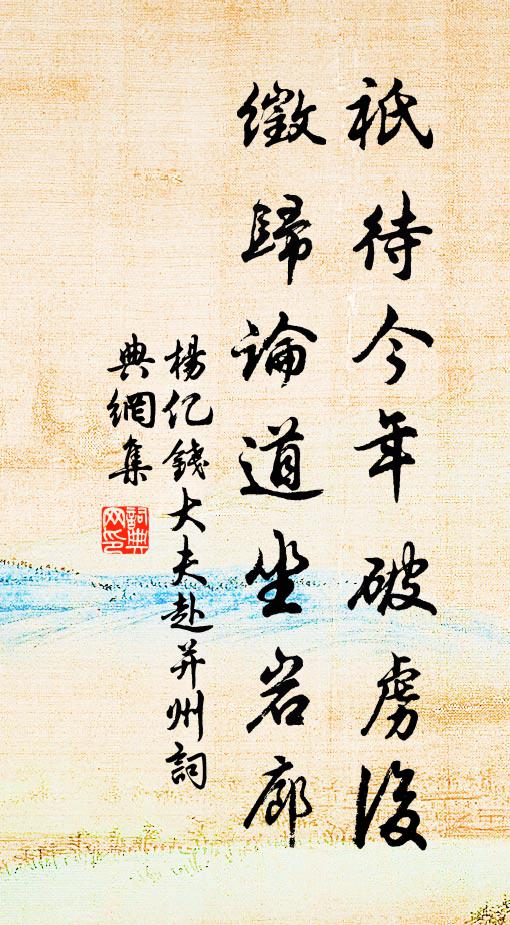 祇待今年破虜後
徵歸論道坐岩廊
楊亿錢大夫赴并州詞
典網集
詞典
网印